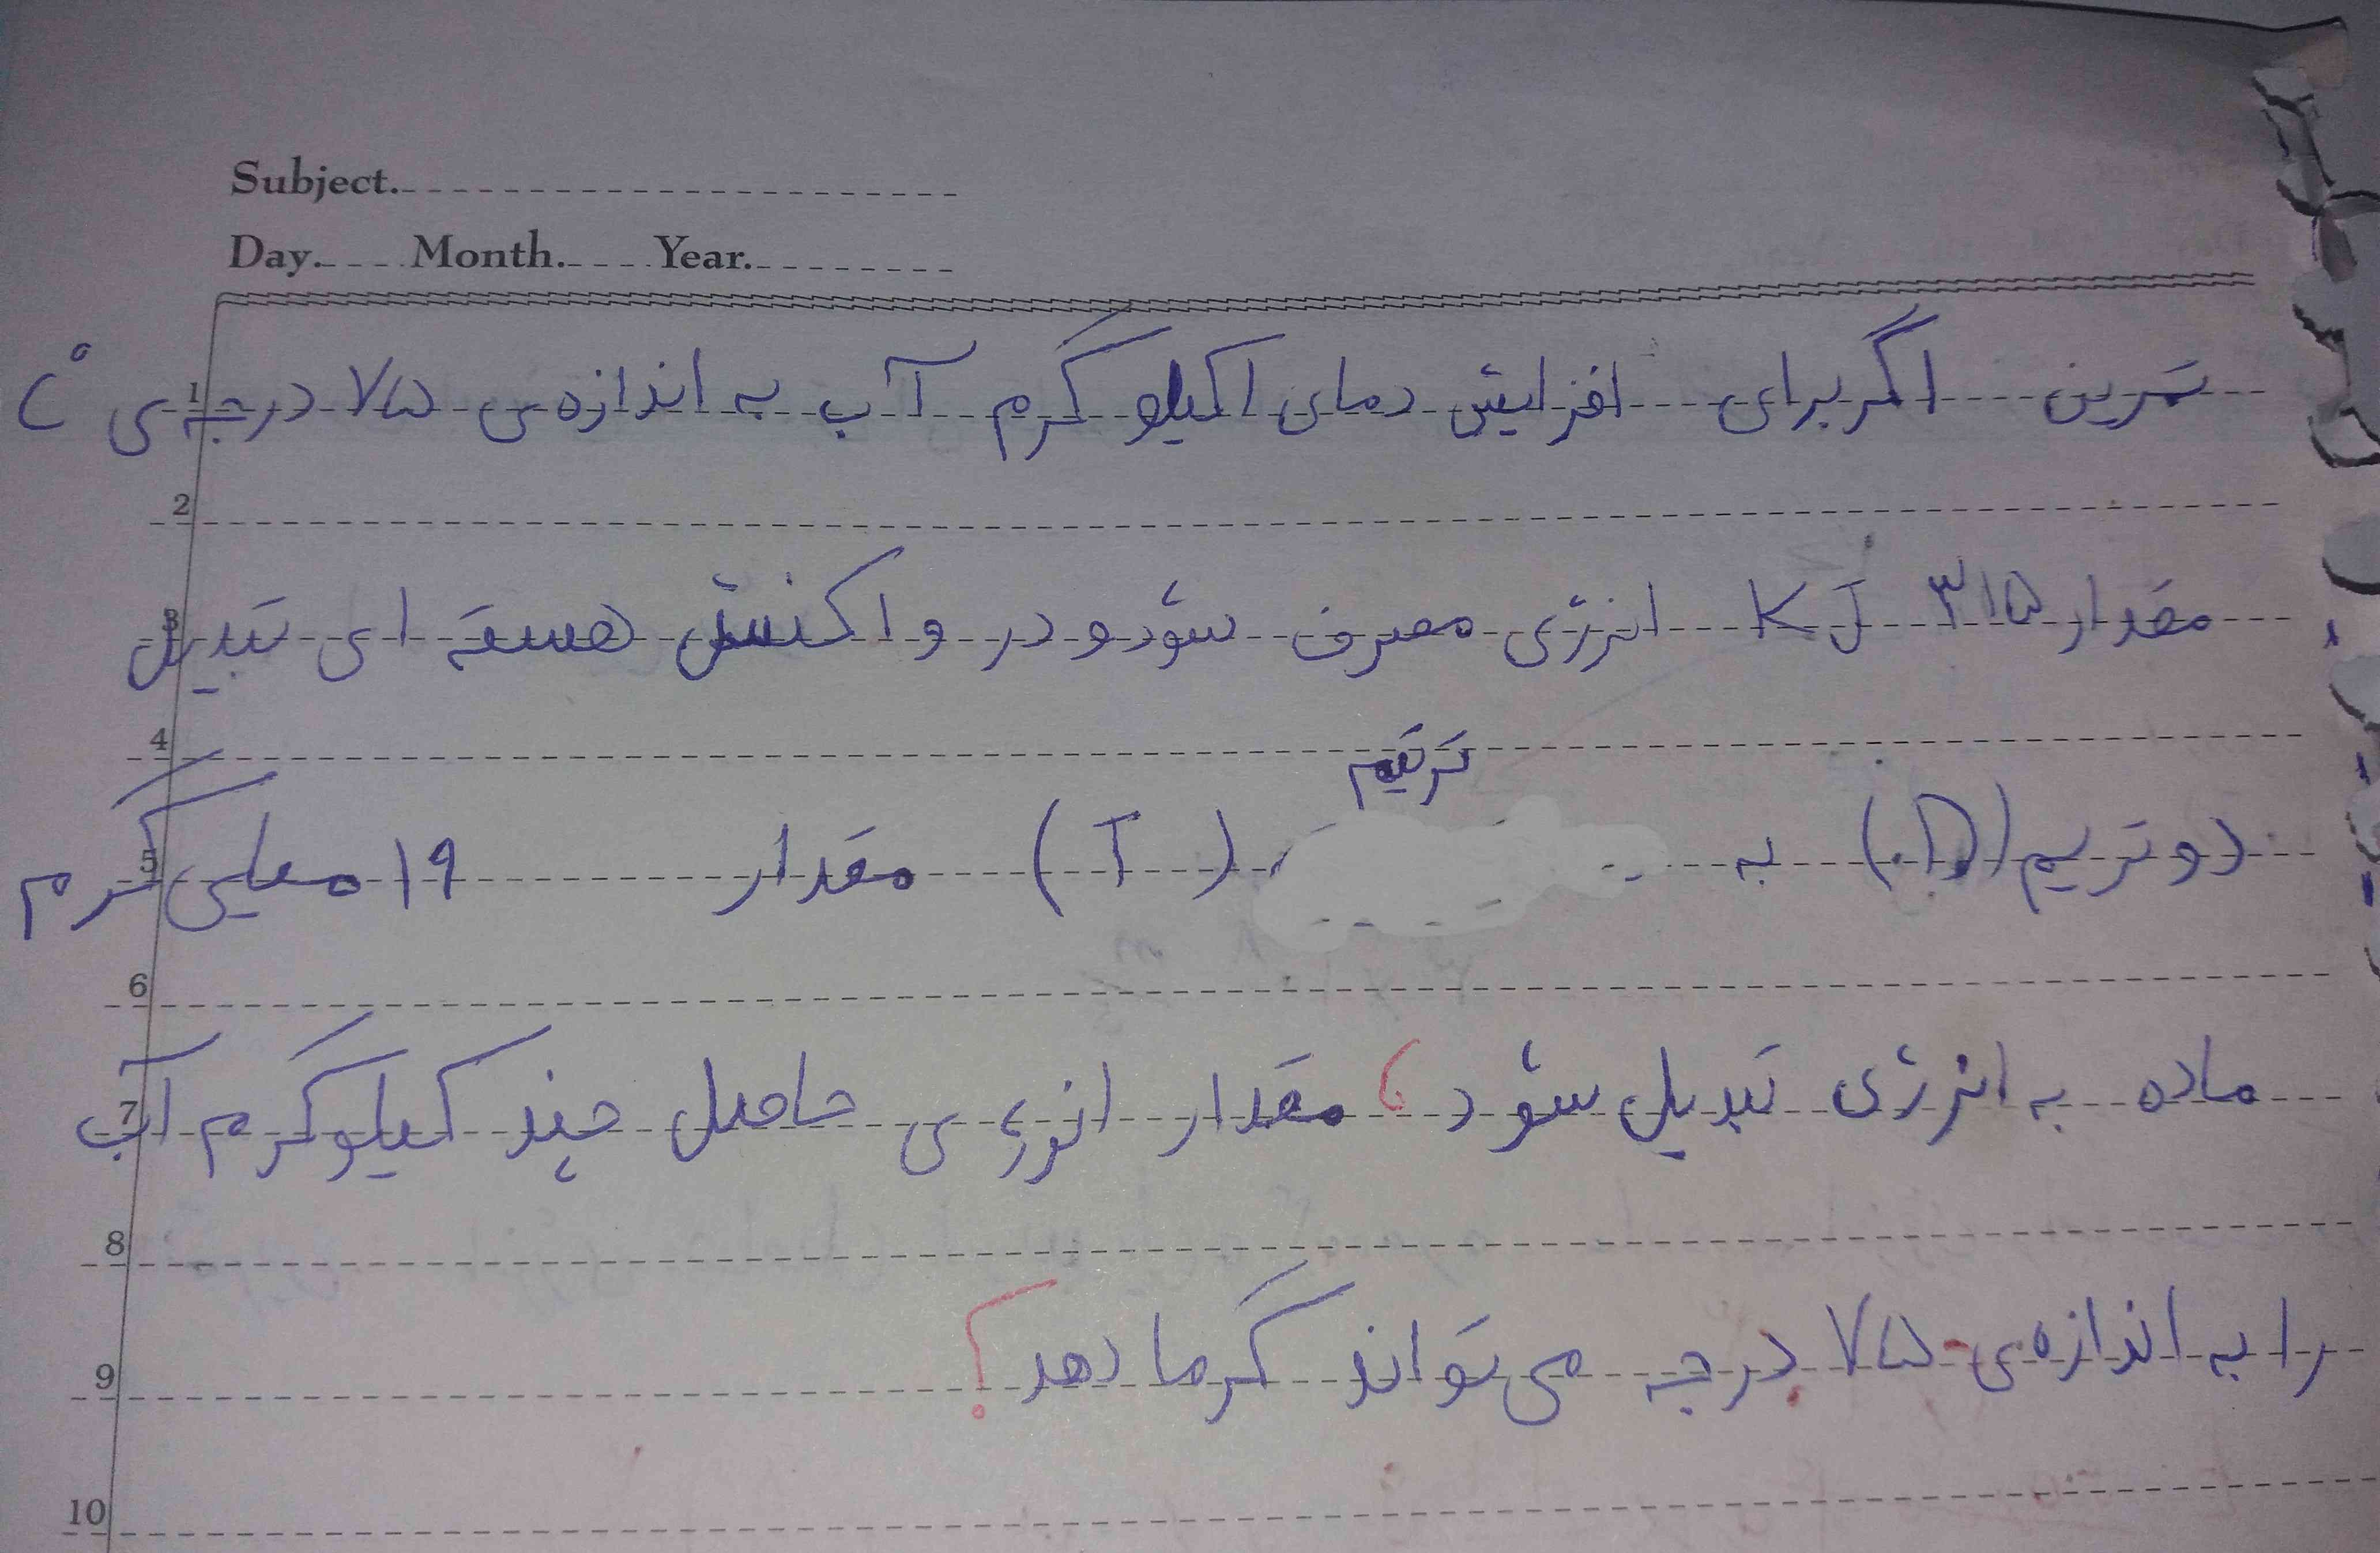 Subject.
Day. Month. Year.
تمرین اگر برای افزایش دمای ۱کیلو گرم آب به اندازه‌ی ۷۵ درجه‌ی C°
1
2
مقدار ۳۱۵ KJ انرژی مصرف شود و در واکنش هسته ای تبدیل
3
4
ترتیم
دوتریم (D) به (T) مقدار ۱۹ میلی گرم
5
6
ماده به انرژی تبدیل شود، مقدار انرژی ی حاصل چند کیلوگرم آب
7
8
را به اندازه‌ی ۷۵ درجه می تواند گرما دهد؟
9
10